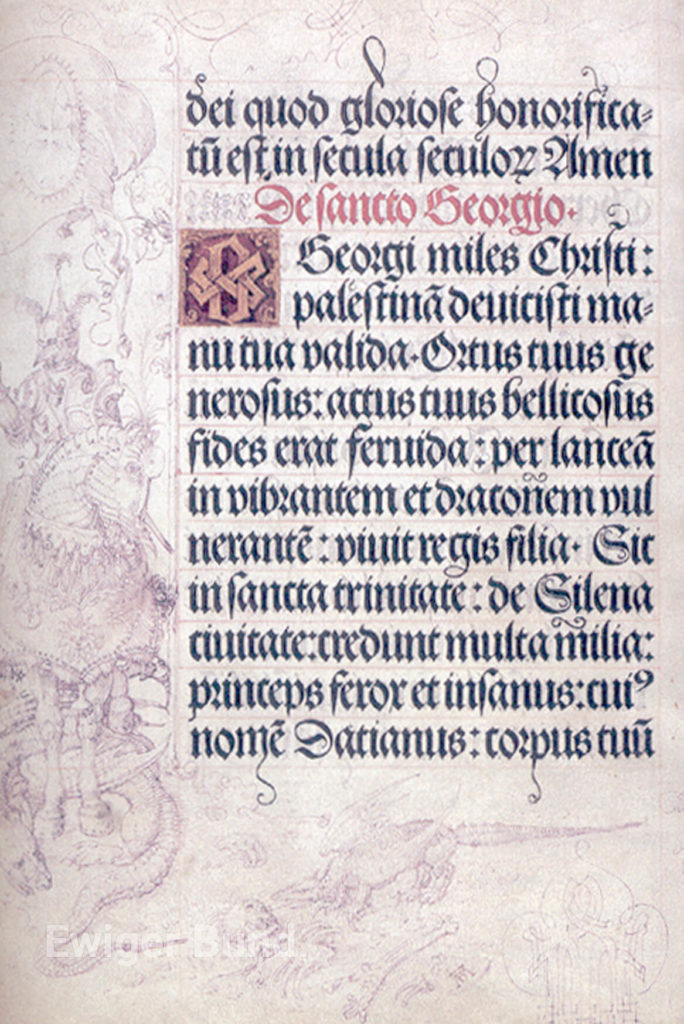 dei quod gloriose honorifica-
tū est, in secula seculoꝝ Amen
De sancto Georgio.
Georgi miles Christi:
palestinā deuicisti ma-
nu tua valida. Ortus tuus ge
nerosus: actus tuus bellicosus
fides erat feruida: per lanceā
in vibrantem et draconem vul
nerantē: viuit regis filia. Sic
in sancta trinitate: de Silena
ciuitate: credunt multa milia:
princeps ferox et insanus: cuiꝰ
nomē Datianus: corpus tuū
Ewiger Bund